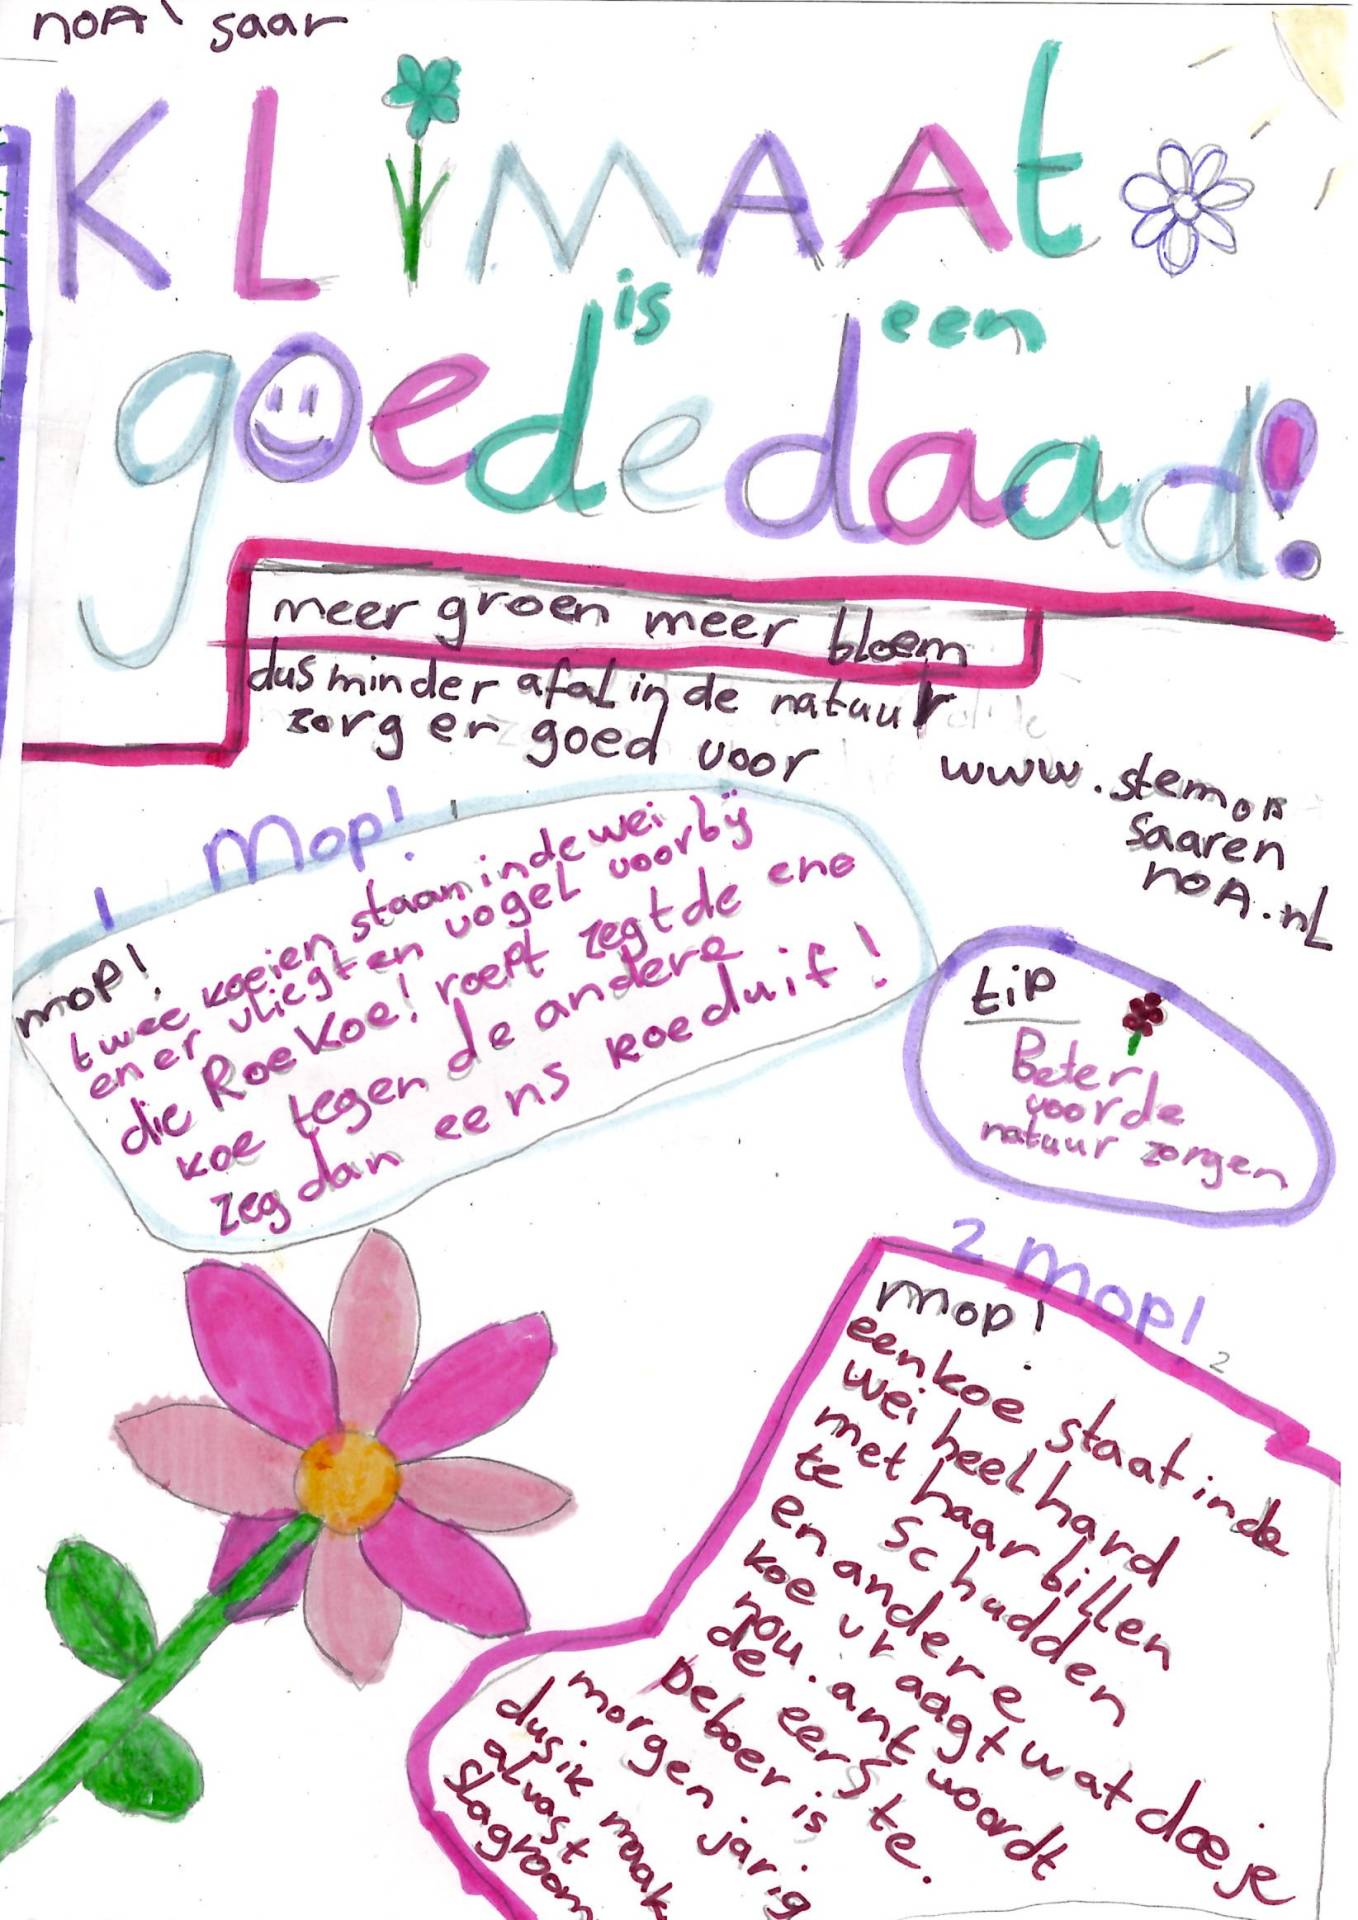 noA' saar
KLiMAAt
is een
goededaad!
meer groen meer bloem
dus minder afal in de natuur
zorg er goed voor
www.stemop
saaren
noA.nl
1 Mop! 1
mop!
twee koeien staan in de wei
en er vliegt en vogel voorbij
die Roekoe! roept zegt de ene
koe tegen de andere
zeg dan eens koeduif!
tip
Beter
voor de
natuur zorgen
2 Mop! 2
mop!
een koe staat in de
wei heel hard
met haar billen
te schudden
en andere
koe vraagt wat doe je
nou. antwoordt
de eerste.
De boer is
morgen jarig
dus ik maak
alvast
slagroom